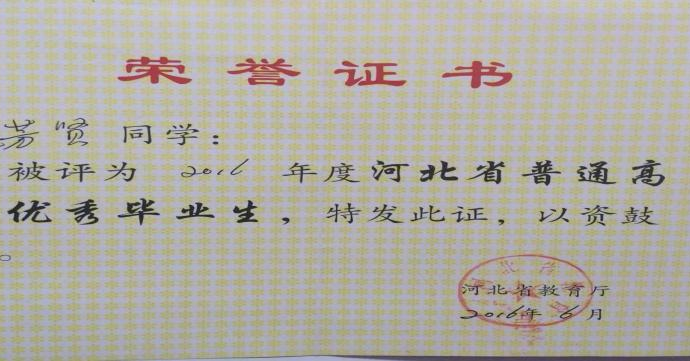 荣誉证书
芳贤 同学：
被评为 2016 年度河北省普通高
优秀毕业生，特发此证，以资鼓
。
河北省教育厅
2016年 6 月